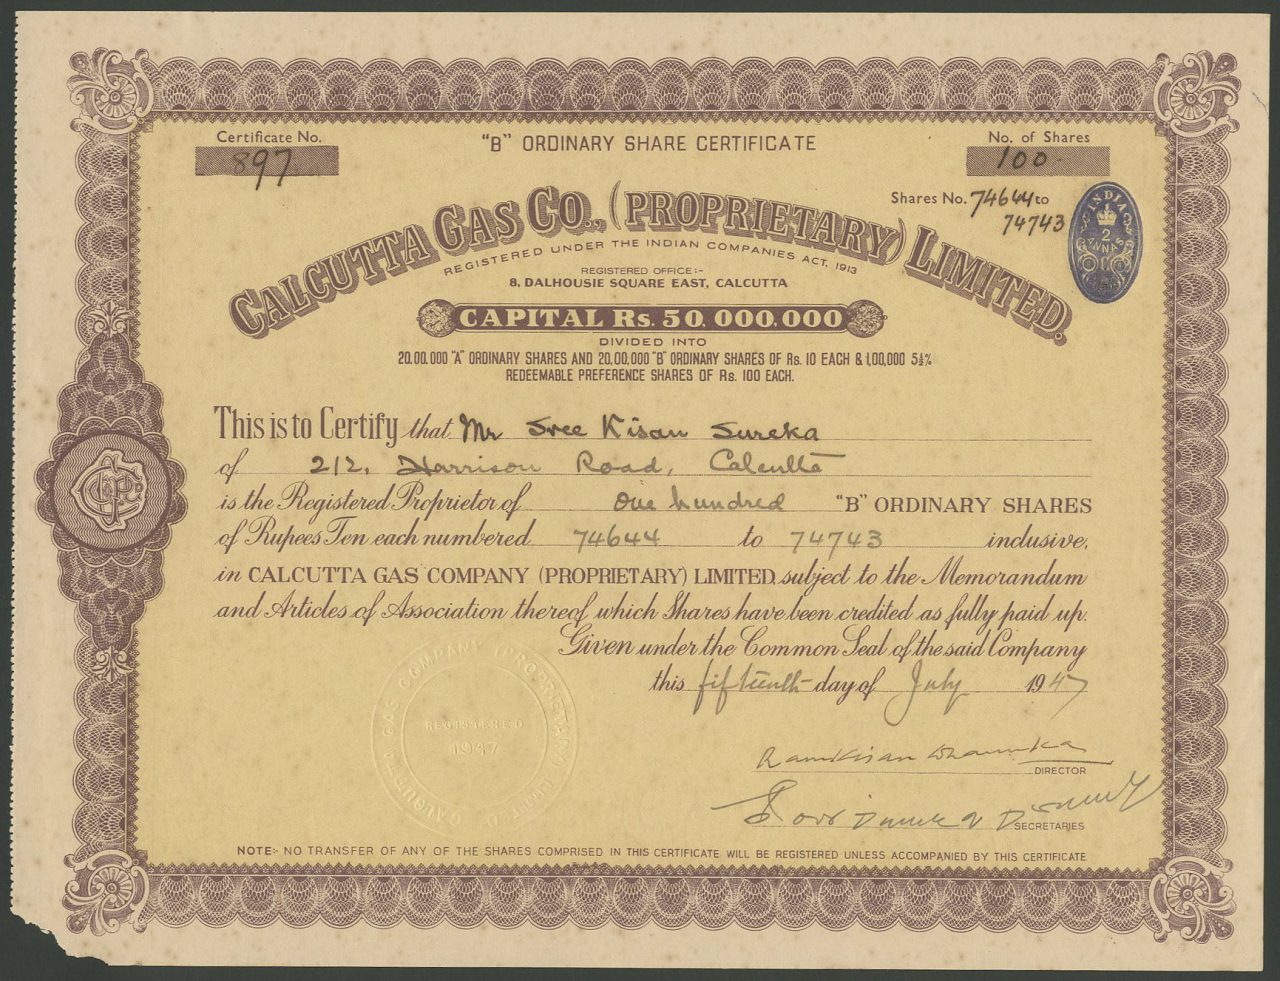 Certificate No.
897
"B" ORDINARY SHARE CERTIFICATE
No. of Shares
100
Shares No. 74644 to
74743
INDIA
2
ANNAS
CALCUTTA GAS CO., (PROPRIETARY) LIMITED.
REGISTERED UNDER THE INDIAN COMPANIES ACT, 1913
REGISTERED OFFICE:-
8, DALHOUSIE SQUARE EAST, CALCUTTA
CAPITAL Rs. 50,000,000
DIVIDED INTO
20,00,000 "A" ORDINARY SHARES AND 20,00,000 "B" ORDINARY SHARES OF Rs. 10 EACH & 1,00,000 5½%
REDEEMABLE PREFERENCE SHARES OF Rs. 100 EACH.
This is to Certify that Mr Sree Kisan Sureka
of 212, Harrison Road, Calcutta
is the Registered Proprietor of One hundred "B" ORDINARY SHARES
of Rupees Ten each numbered 74644 to 74743 inclusive,
in CALCUTTA GAS COMPANY (PROPRIETARY) LIMITED, subject to the Memorandum
and Articles of Association thereof which Shares have been credited as fully paid up.
Given under the Common Seal of the said Company
this fifteenth day of July 1947
CALCUTTA GAS COMPANY (PROPRIETARY) LIMITED
REGISTERED
1947
DIRECTOR
SECRETARIES
NOTE:- NO TRANSFER OF ANY OF THE SHARES COMPRISED IN THIS CERTIFICATE WILL BE REGISTERED UNLESS ACCOMPANIED BY THIS CERTIFICATE